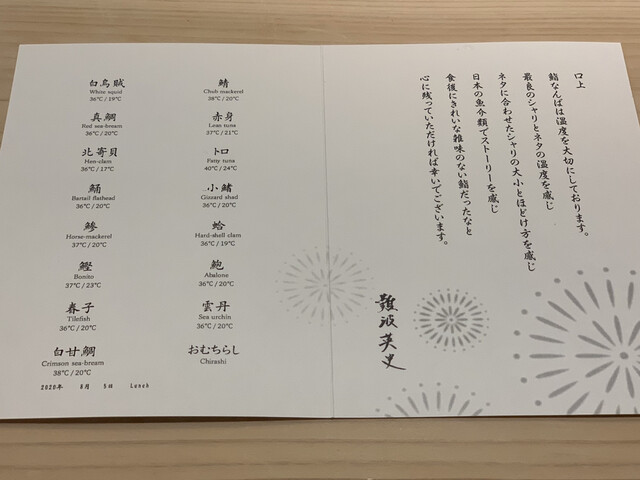 白烏賊
White squid
36℃ / 19℃
真鯛
Red sea-bream
36℃ / 20℃
北寄貝
Hen-clam
36℃ / 17℃
鯒
Bartail flathead
36℃ / 20℃
鯵
Horse-mackerel
37℃ / 20℃
鰹
Bonito
37℃ / 23℃
春子
Tilefish
36℃ / 20℃
白甘鯛
Crimson sea-bream
38℃ / 20℃
2020年 8月 5日 Lunch
鯖
Chub mackerel
38℃ / 20℃
赤身
Lean tuna
37℃ / 21℃
トロ
Fatty tuna
40℃ / 24℃
小鰭
Gizzard shad
36℃ / 20℃
蛤
Hard-shell clam
36℃ / 19℃
鮑
Abalone
36℃ / 20℃
雲丹
Sea urchin
36℃ / 20℃
おむちらし
Chirashi
口上
鮨なんばは温度を大切にしております。
最良のシャリとネタの温度を感じ
ネタに合わせたシャリの大小とほどけ方を感じ
日本の魚介類でストーリーを感じ
食後にきれいな雑味のない鮨だったなと
心に残っていただければ幸いでございます。
難波英史